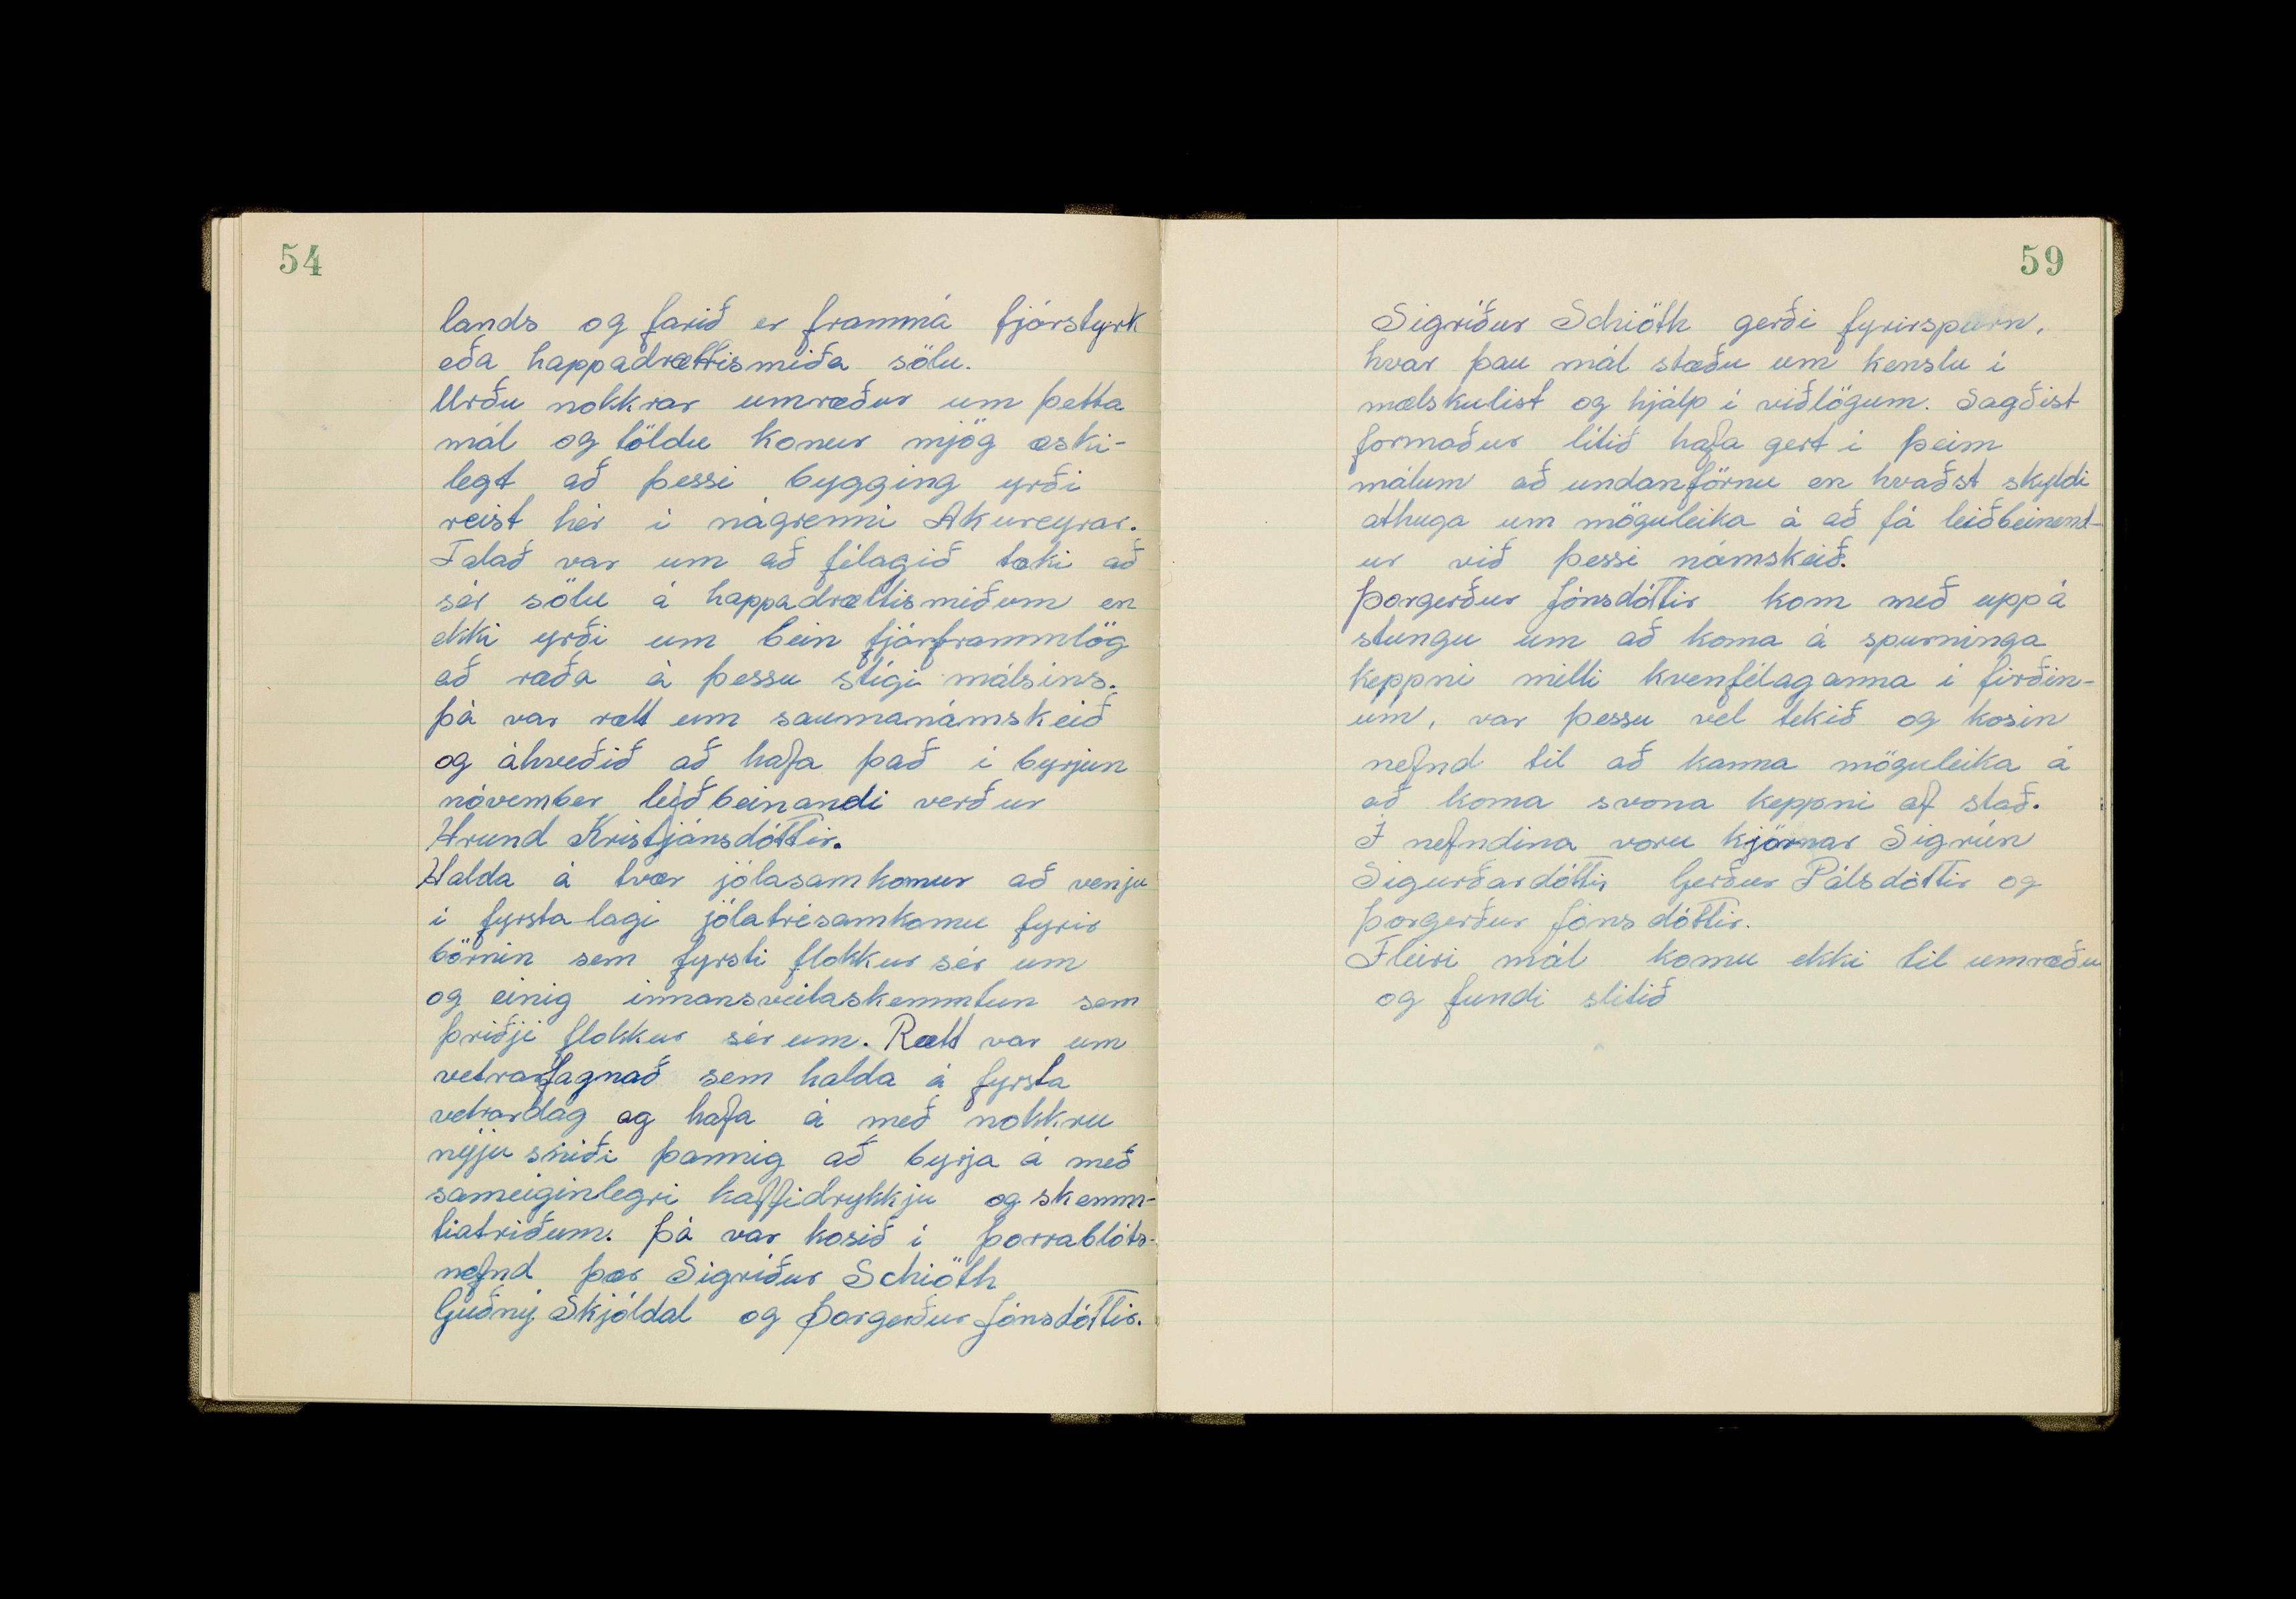 54
lands og farið er frammá fjárstyrk
eða happadrættismiða sölu.
Urðu nokkrar umræður um þetta
mál og töldu konur mjög æski-
legt að þessi bygging yrði
reist hér í nágrenni Akureyrar.
Talað var um að félagið tæki að
sér sölu á happadrættismiðum en
ekki yrði um bein fjárframmlög
að ræða á þessu stígi málsins.
þá var rætt um saumanámskeið
og ákveðið að hafa það í byrjun
nóvember leiðbeinandi verður
Hrund Kristjánsdóttir.
Halda á tvær jólasamkomur að venju
í fyrsta lagi jólatrésamkomu fyrir
börnin sem fyrsti flokkur sér um
og einig innansveitaskemmtun sem
þriðji flokkur sér um. Rætt var um
vetrarfagnað sem halda á fyrsta
vetrardag og hafa á með nokkru
nýju sniði þannig að byrja á með
sameiginlegri kaffidrykkju og skemm-
tiatriðum. þá var kosið í þorrablóts-
nefnd þær Sigríður Schiöth
Guðný Skjóldal og Þorgerður Jónsdóttir.
59
Sigríður Schiöth gerði fyrirspurn,
hvar þau mál stæðu um kenslu í
mælskulist og hjálp í viðlögum. Sagðist
formaður lítið hafa gert í þeim
málum að undanförnu en kvaðst skyldi
athuga um möguleika á að fá leiðbeinend-
ur við þessi námskeið.
Þorgerður Jónsdóttir kom með uppá
stungu um að koma á spurninga
keppni milli kvenfélaganna í firðin-
um, var þessu vel tekið og kosin
nefnd til að kanna möguleika á
að koma svona keppni af stað.
Í nefndina voru kjörnar Sigrún
Sigurðardóttir Gerður Pálsdóttir og
Þorgerður Jónsdóttir.
Fleiri mál komu ekki til umræðu
og fundi slitið